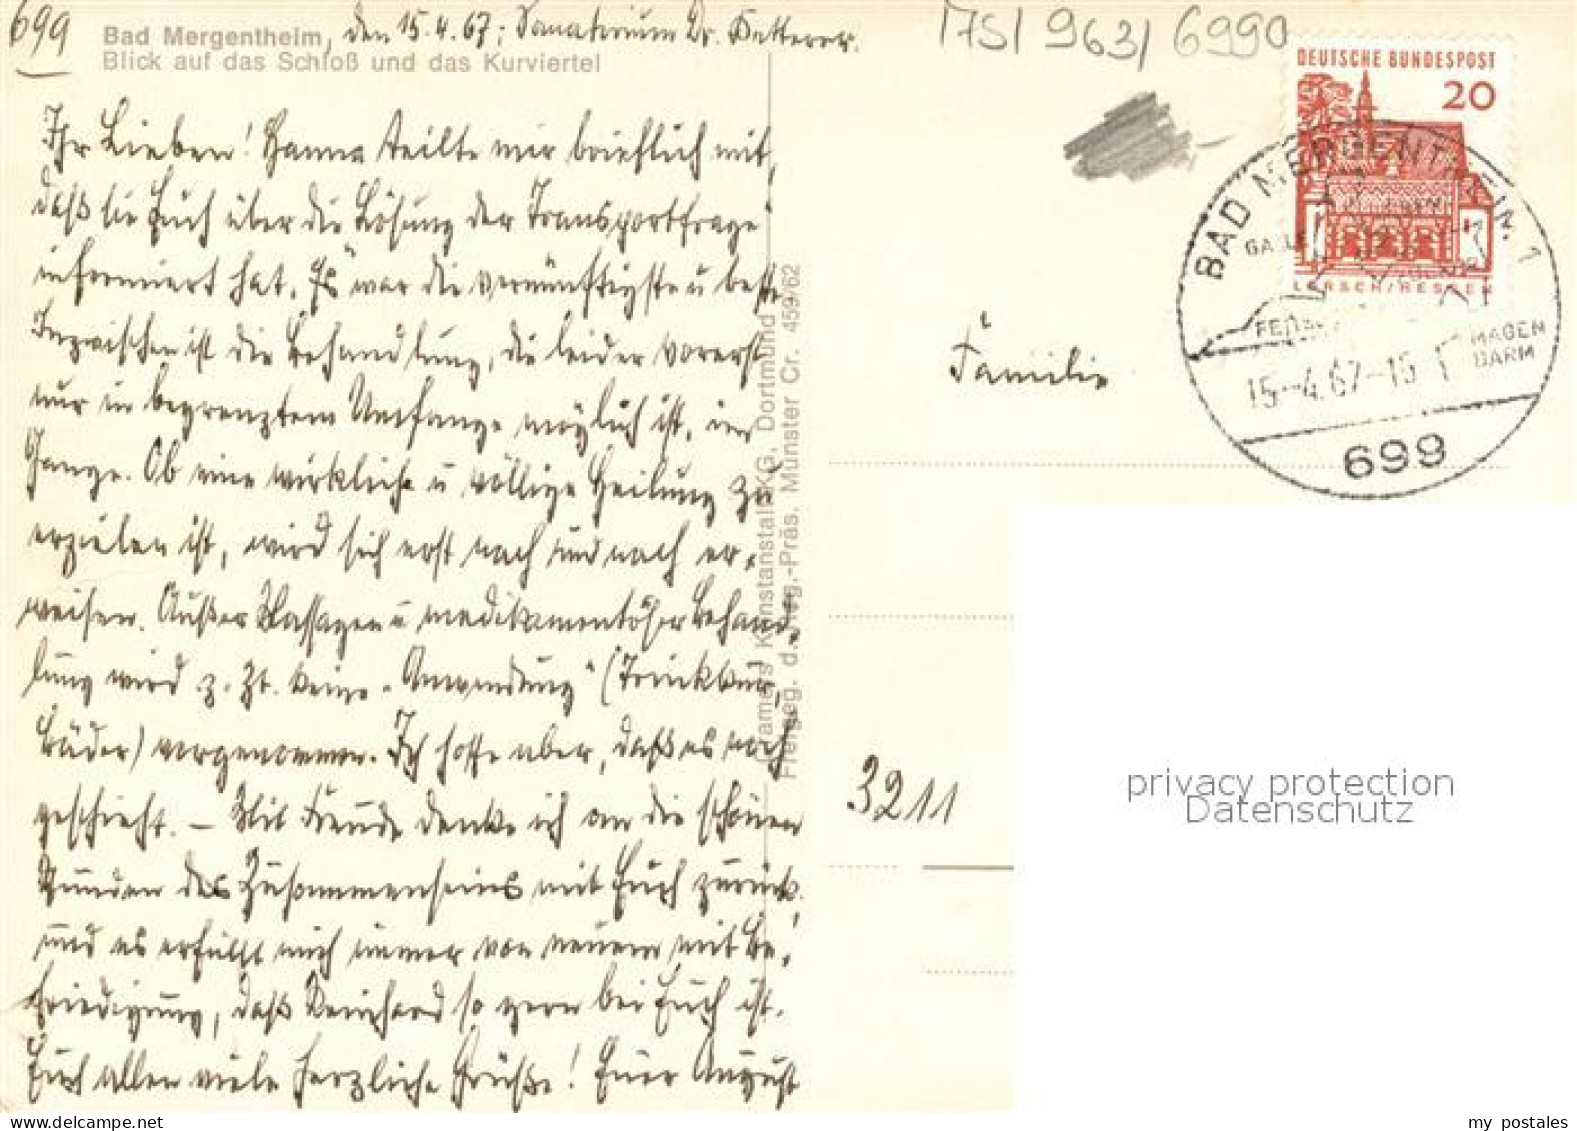 699
Bad Mergentheim, den 15.4.67; Sanatorium Dr. Ketterer.
Blick auf das Schloß und das Kurviertel
Ihr Lieben! Hanna teilte mir brieflich mit,
daß sie Euch über die Lösung der "Transportfrage"
informiert hat. Es war die vernünftigste u beste.
Inzwischen ist die Behandlung, die leider vorerst
nur in begrenztem Umfange möglich ist, im
Gange. Ob eine wirkliche u völlige Heilung zu
erzielen ist, wird sich erst nach und nach er-
weisen. Außer Massagen u medikamentöser Behand-
lung wird z. Zt. keine "Anwendung" (Trinkkur,
Bäder) vorgenommen. Ich hoffe aber, daß es noch
geschieht. – Mit Freude denke ich an die schönen
Stunden des Zusammenseins mit Euch zurück,
und es erfüllt mich immer von neuem mit Be-
friedigung, daß Reinhard so gern bei Euch ist.
Euch allen viele herzliche Grüße! Euer August
Cramers Kunstanstalt KG, Dortmund
Freigeg. d. Reg.-Präs. Münster Cr. 459/62
17S/ 963/ 6990
DEUTSCHE BUNDESPOST
20
LORSCH/HESSEN
BAD MERGENTHEIM 1
MAGEN
DARM
15.-4.67-16
699
Familie
3211
privacy protection
Datenschutz
www.delcampe.net
my postales